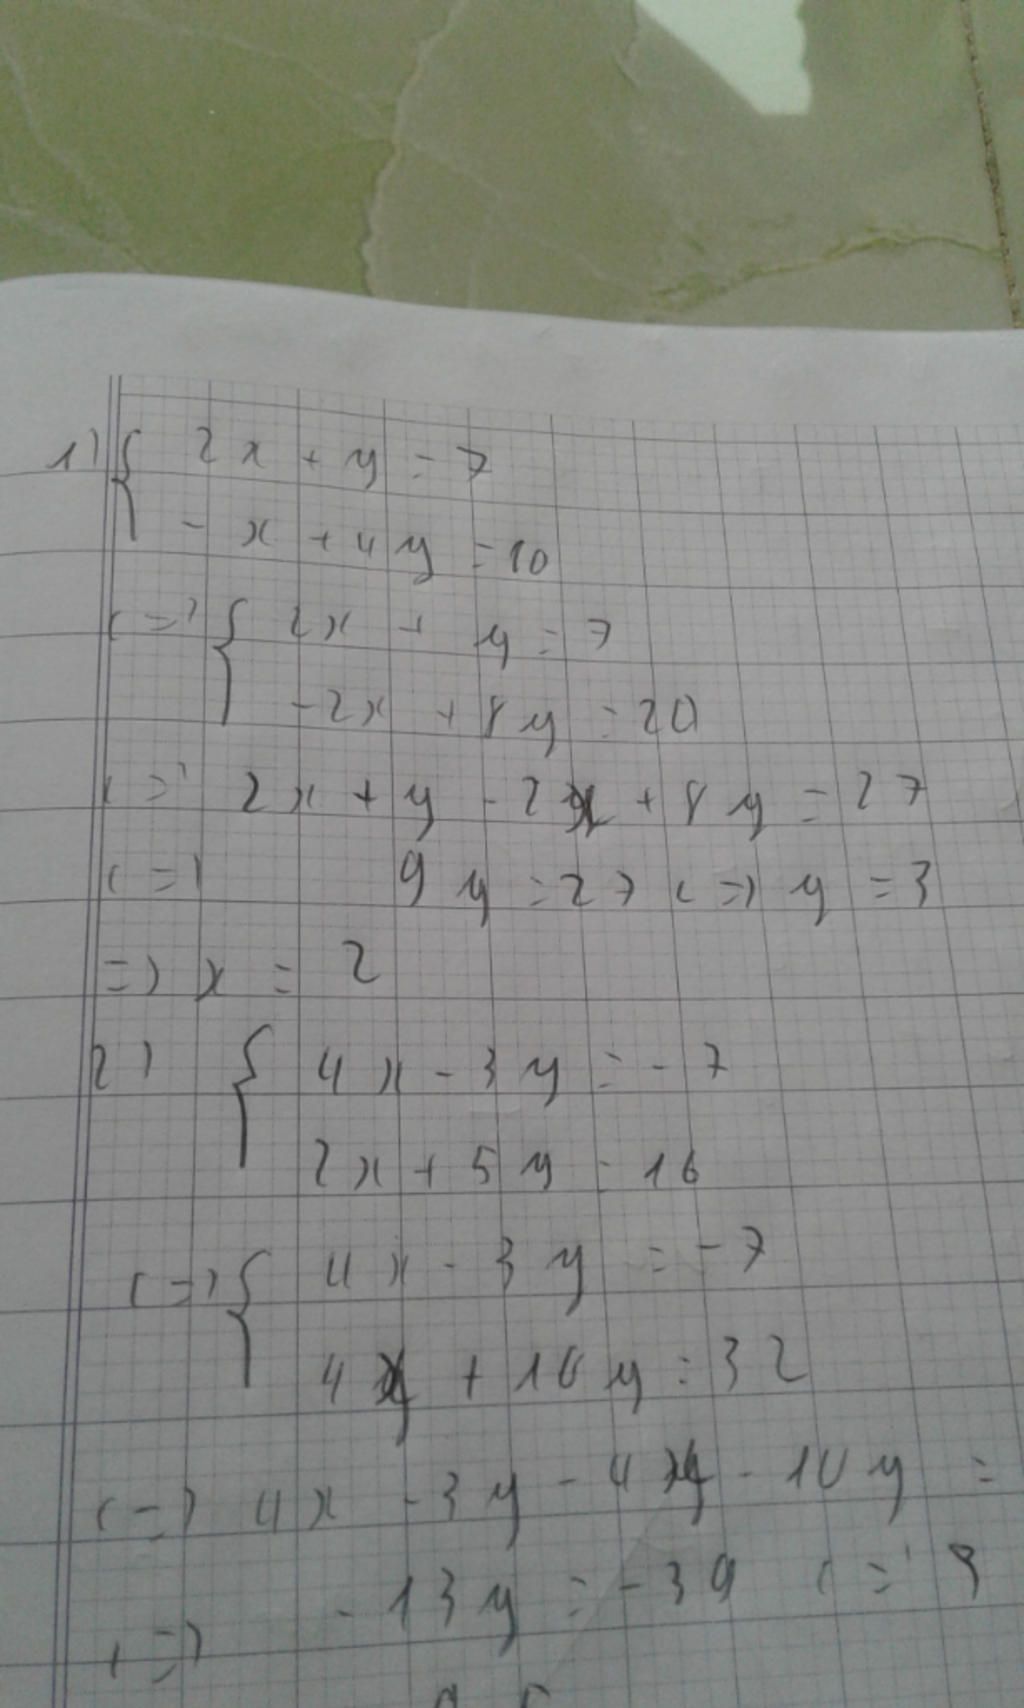 1) { 2x + y = 7
- x + 4y = 10
<=> { 2x + y = 7
-2x + 8y = 20
<=> 2x + y - 2x + 8y = 27
<=> 9y = 27 <=> y = 3
=> x = 2
2) { 4x - 3y = -7
2x + 5y = 16
<=> { 4x - 3y = -7
4x + 10y = 32
<=> 4x - 3y - 4x - 10y =
<=> -13y = -39 <=>